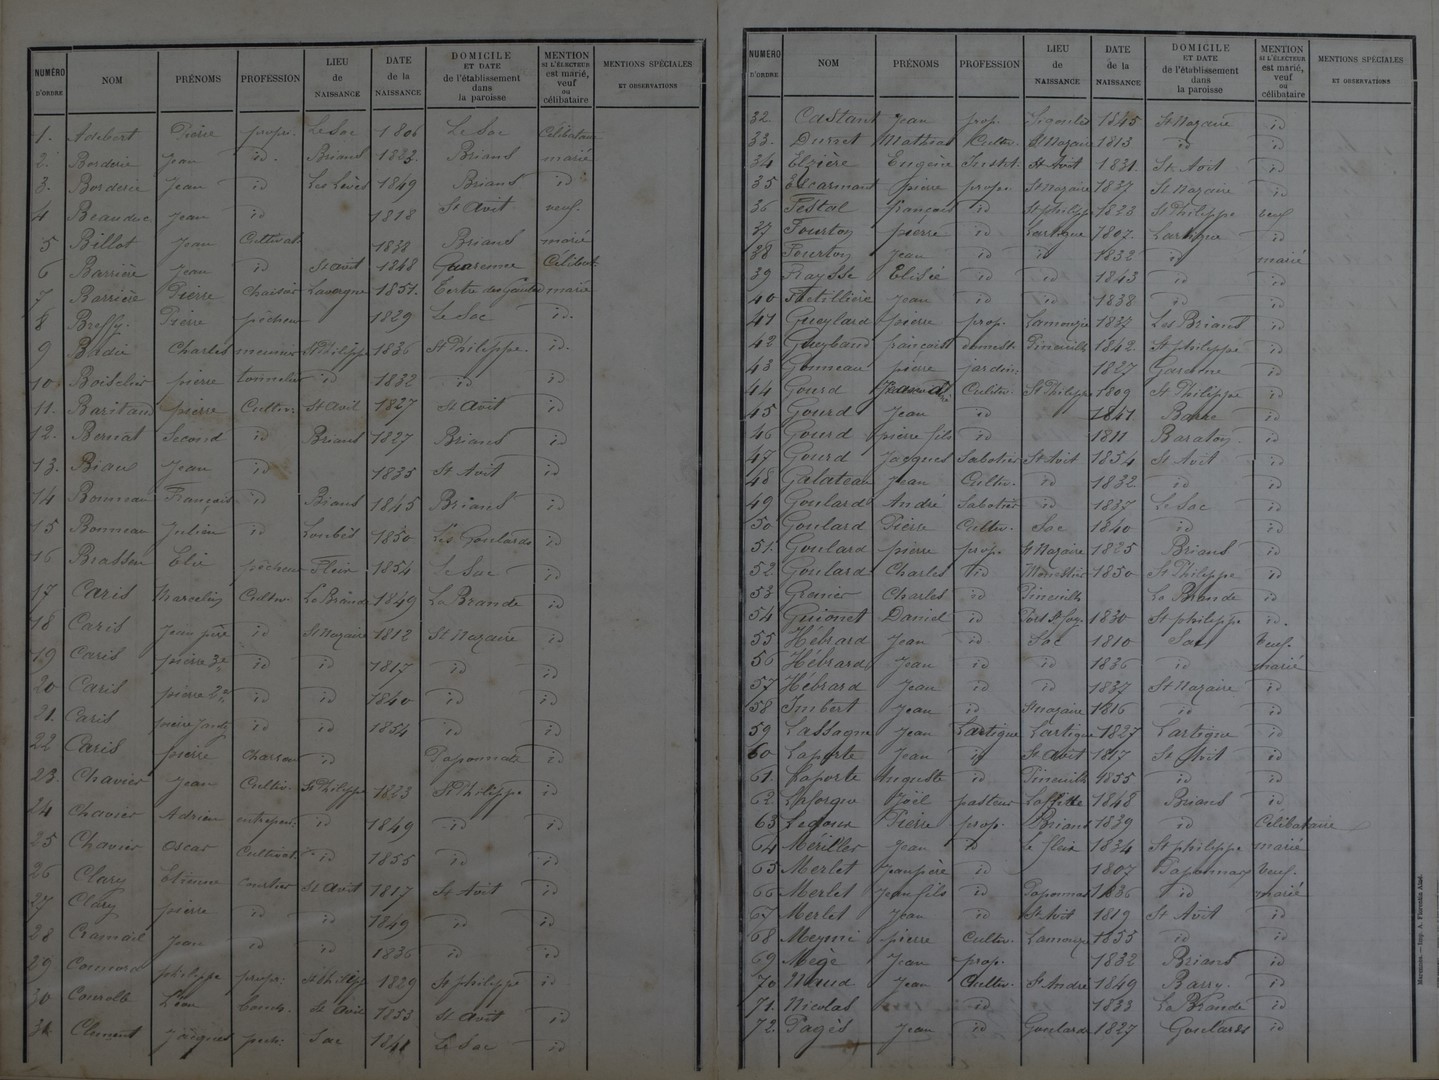 NUMÉRO D'ORDRE NOM PRÉNOMS PROFESSION LIEU de NAISSANCE DATE de la NAISSANCE DOMICILE ET DATE de l'établissement dans la paroisse MENTION SI L'ÉLECTEUR est marié, veuf ou célibataire MENTIONS SPÉCIALES ET OBSERVATIONS
1. Adebert Pierre propr. Le Sac 1806 Le Sac Célibataire
2. Borderie Jean id. Briands 1822 Briands marié
3. Borderie Jean id Les Lèves 1849 Briands id
4 Beauduc Jean id 1818 St Avit veuf.
5 Billot Jean Cultivat. 1838 Briands marié
6 Barrière Jean id St avit 1848 Guarenne Célibat.
7 Barrière Pierre Lavergne 1851. Tertre des marié
8 Breffy. Pierre pêcheur 1829 Le Sac id.
9 Badie Charles meunier St Philippe 1836 St Philippe. id.
10. Boisclair pierre tonnelier id 1832 id id
11. Baritaud pierre Cultiv. St avit 1827 St avit id
12. Bernat Second id Briands 1827 Briands id
13. Biaud Jean id 1835 St Avit id
14 Bonneau François id Briands 1845 Briands id
15 Bonneau Julien id Loubès 1850 Les Goulards id
16 Brasseur Elie pêcheur Fleix 1854 Le Sac id
17 Caris Marcelin Cultiv. La Brande 1849 La Brande id
18 Caris Jean père id St Nazaire 1812 St Nazaire id
19 Caris pierre 3e id id 1817 id id
20 Caris pierre 2e id id 1840 id id
21. Caris pierre id id 1854 id id
22 Caris pierre Charron id Paponnate id
23. Chavier Jean Cultiv. St Philippe 1823 St Philippe id
24 Chavier Adrien entrepen. id 1849 id id
25 Chavier Oscar Cultivat. id 1855 id id
26 Clary Etienne courtier St avit 1817 St Avit id
27 Clary pierre id id 1849 id id
28 Cramail Jean id id 1836 id id
29 Connord philippe propr. St philipp 1829 St philippe id
30 Léon St avit 1853 St avit id
31 Clement Jacques Sac 1841 Le Sac id
NUMÉRO D'ORDRE NOM PRÉNOMS PROFESSION LIEU de NAISSANCE DATE de la NAISSANCE DOMICILE ET DATE de l'établissement dans la paroisse MENTION SI L'ÉLECTEUR est marié, veuf ou célibataire MENTIONS SPÉCIALES ET OBSERVATIONS
32. Castant Jean prop. Ligoules 1845 St Nazaire id
33. Durret Mathieu Cultiv. St Nazaire 1813 id id
34 Elzière Eugène Instit. St Avit 1831. St Avit id
35 Escarmant pierre propr. St Nazaire 1837 St Nazaire id
36 Festal françois id St philipp 1823 St Philippe veuf
37 Fourton pierre id Lartigue 1807. Lartigue id
38 Fourton Jean id id 1832 id marié
39 Faysse Elisée id id 1843 id id
40 Jean id id 1838 id id
41 Gueylard pierre prop. Lamonzie 1837 Les Briands id
42 françois domest. Pineuilh 1842. St philippe id
43 Gonneau pierre jardin. 1827 Gardone id
44 Gourd Cultiv. St Philippe 1809 St Philippe id
45 Gourd Jean id 1841 Barre id
46 Gourd pierre fils id 1811 Baraton id
47 Gourd Jacques Sabotier St Avit 1854 St Avit id
48 Galateau Jean Cultiv. id 1832 id id
49 Goulard André Sabotier id 1837 Le Sac id
50. Goulard Pierre Cultiv. Sac 1840 id id
51. Goulard pierre prop. St Nazaire 1825 Briands id
52. Goulard Charles id Monestier 1850 St Philippe id
53 Grenier Charles id Pineuilh La Brande id
54 Guionet Daniel id Port Ste Foy 1830 St philippe id.
55 Hébrard Jean id Sac 1810 Sac Veuf.
56 Hébrard Jean id id 1836 id marié
57 Hébrard Jean id id 1837 St Nazaire id
58 Imbert Jean id St nazaire 1816 id id
59 Lassagne Jean Lartigue Lartigue 1827 Lartigue id
60 Laporte Jean id St avit 1817 St Avit id
61. Laporte Auguste id Pineuilh 1855 id id
62. Laforgue Joël pasteur Laffitte 1848 Briands id
63 Ledoux Pierre prop. Briands 1839 id Célibataire
64 Mériller Jean id Le fleix 1834 St philippe marié
65 Merlet Jean père id 1807 Paponnat Veuf.
66 Merlet Jean fils id Paponnat 1836 id marié
67 Merlet Jean id St Avit 1819 St Avit id
68 Meymi pierre Cultiv. Lamonzie 1855 id id
69 Mège Jean prop. 1832 Briands id
70 Naud Jean Cultiv. St André 1849 Barry. id
71. Nicolas id 1833 La Brande id
72. Pagès Jean id Goulards 1827 Goulards id
Marennes. — Imp. A. Florentin Aîné.